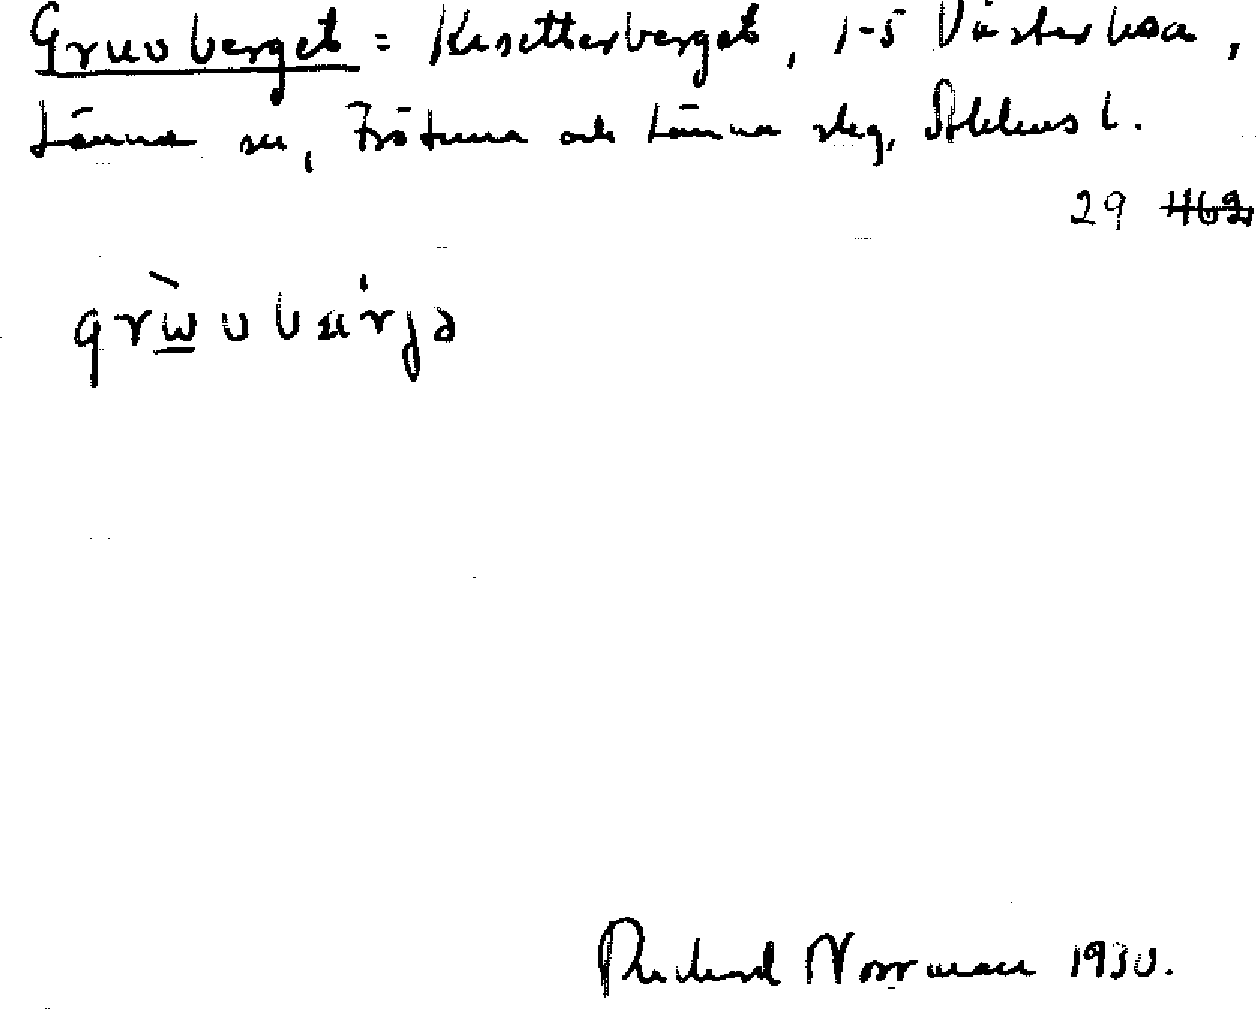 Gruvberget = Kasetterberget, 1-5 Västerboa,
Länna sn, Frötuna och Länna skg, Sthlms l.
29 462
gruvbärjə
Rickard Norrman 1930.